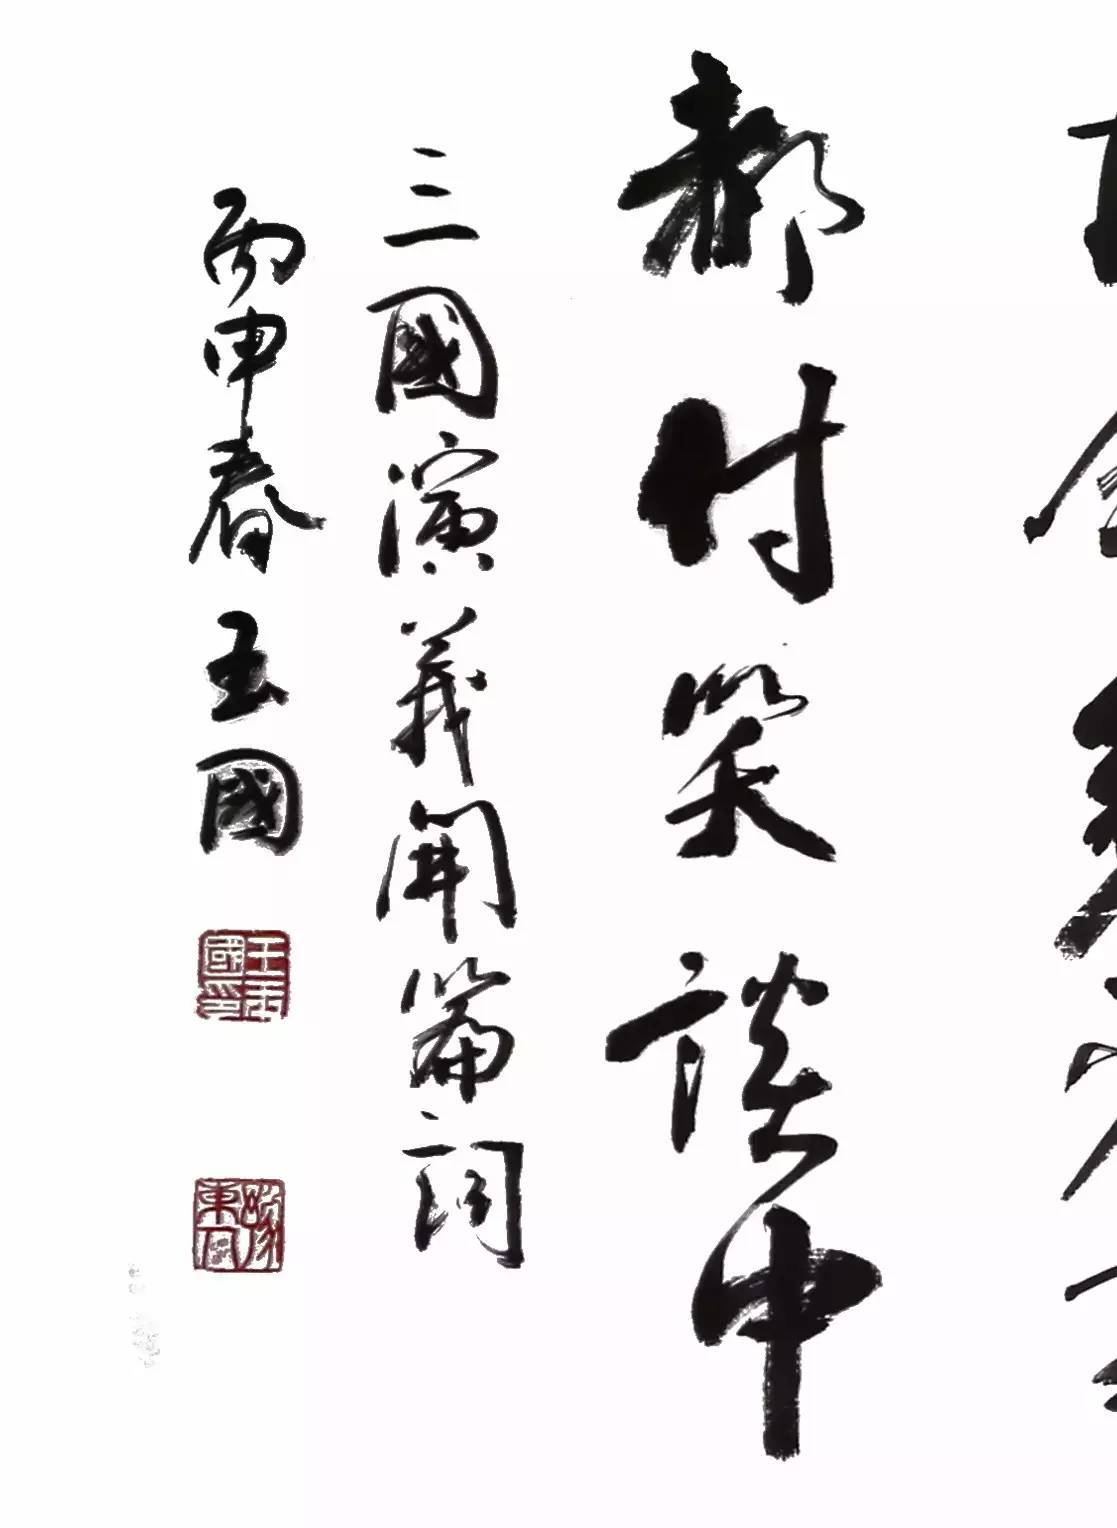 都付笑談中
三國演義開篇詞
丙申春玉國
王玉國印